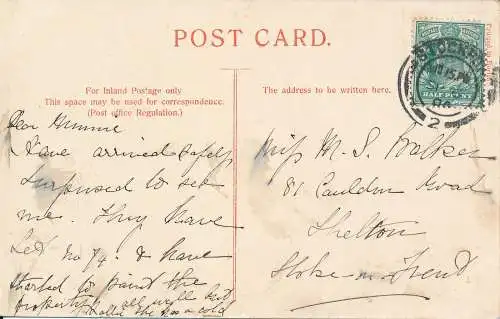 POST CARD.
For Inland Postage only
This space may be used for correspondence.
(Post office Regulation.)
The address to be written here.
HALFPENNY
2
Dear Minnie
Have arrived safely
surprised to see
me. They have
Let no 74. & have
started to paint the
property all well but
Hattie she has a cold
Miss M. S. Walker
81 Cauldon Road
Shelton
Stoke-on-Trent